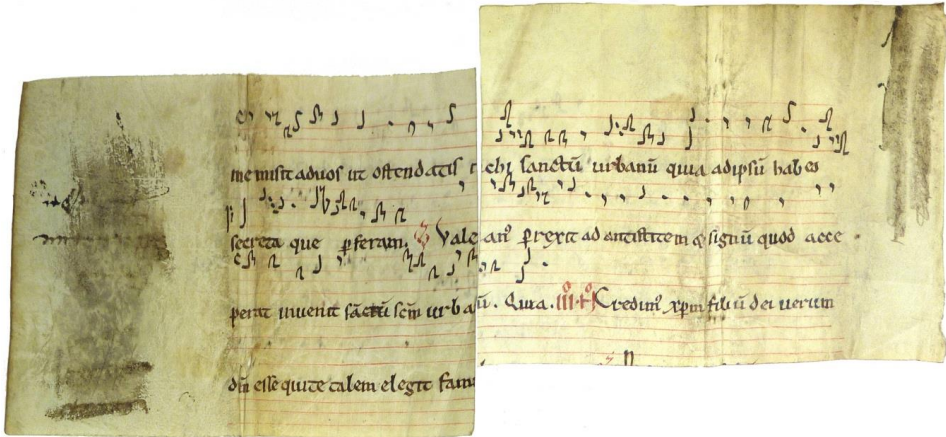 me misit aduos ut ostendatis michi sanctū urbanū quia adipsū habeo
secreta que ꝑferam. ℣ Valerianꝰ ꝑrexit ad antistitem & signū quod acce
perat inuenit sāctū scm̄ urbanū. Quia. iii. ℟ Credimꝰ xp̄m filiū dei uerum
dm̄ esse qui te talem elegit famu